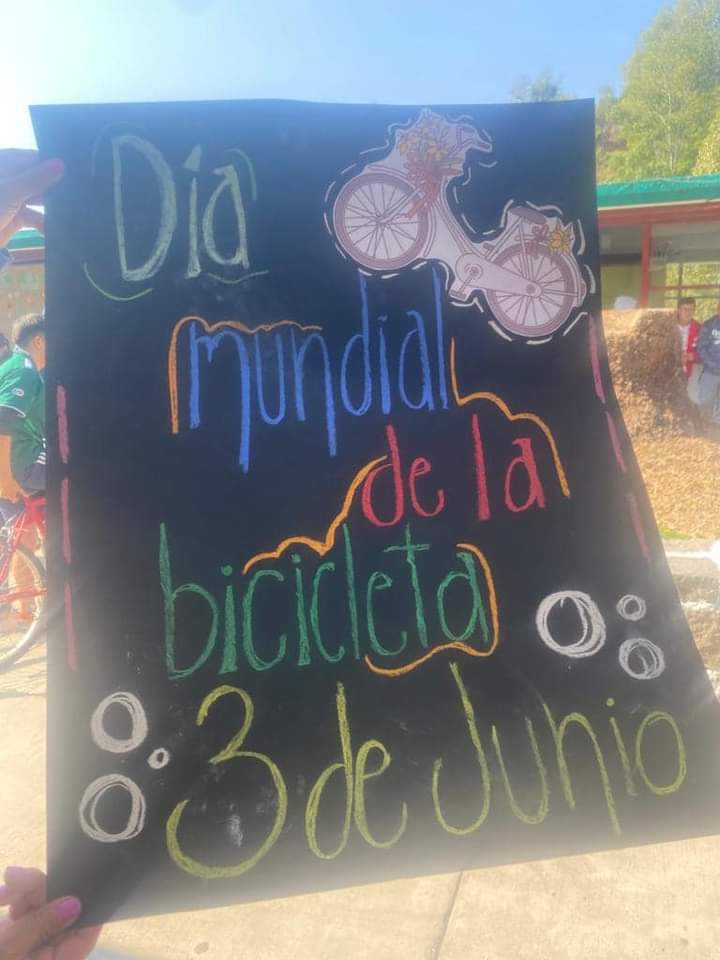 Día
mundial
de la
bicicleta
3 de Junio